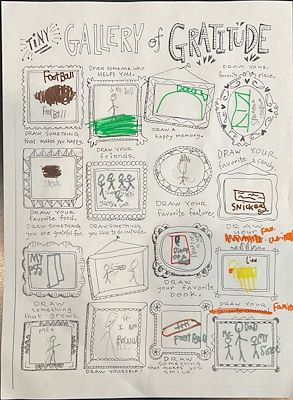 TINY GALLERY of GRATITUDE
FootBall
FootBall
DRAW SOMETHING
that makes you happy.
DRAW SOMEONE who
HELPS YOU.
DRAW A
happy memory.
DRAW YOUR
favorite place.
Steak
DRAW YOUR
favorite food.
DRAW YOUR
friends.
DRAW YOUR
favorite feature.
DRAW YOUR
favorite candy.
SNICKERS
DRAW SOMETHING
you are grateful for.
MY
DRAW SOMETHING
you like to do outside.
DRAW
your favorite
book.
DRAW
YOUR
Fav.
Lion
DRAW
something
that grows.
DRAW YOURSELF.
FootBall
DRAW
something
that makes you
SMILE.
DRAW YOUR
Dad